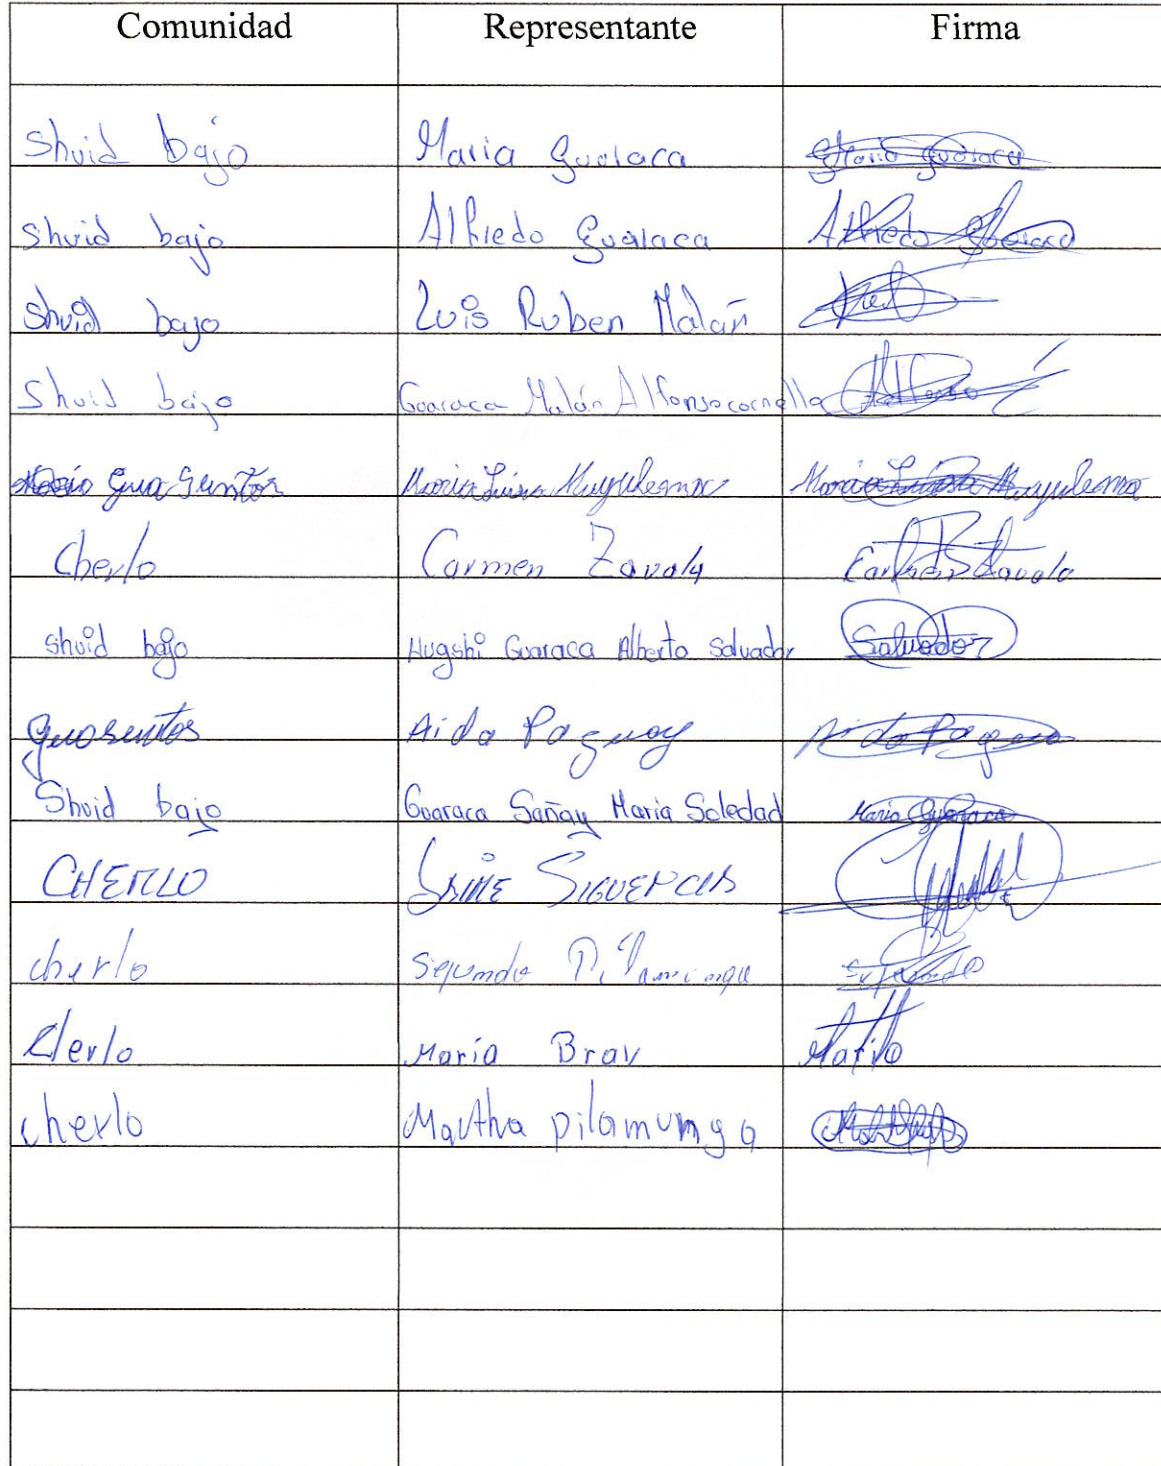 Comunidad Representante Firma
Shuid bajo Maria Guaraca Maria Guaraca
Shuid bajo Alfredo Guaraca Alfredo Guaraca
Shuid bajo Luis Ruben Malán
Shuid bajo Guaraca Malán Alfonso Alfonso
Gua Suntos Maria Luisa Muyulema Maria Luisa Muyulema
Cherlo Carmen Zavala Carmen Zavala
Shuid bajo Hugshi Guaraca Alberto Salvador Salvador
guosuntos Aida Paguay Aida Pagua
Shuid bajo Guaraca Sañay Maria Soledad Maria Guaraca
CHERLO JAIME SIGUENCIA
cherlo Segundo Segundo
Cherlo María Brav
cherlo Martha pilamunga